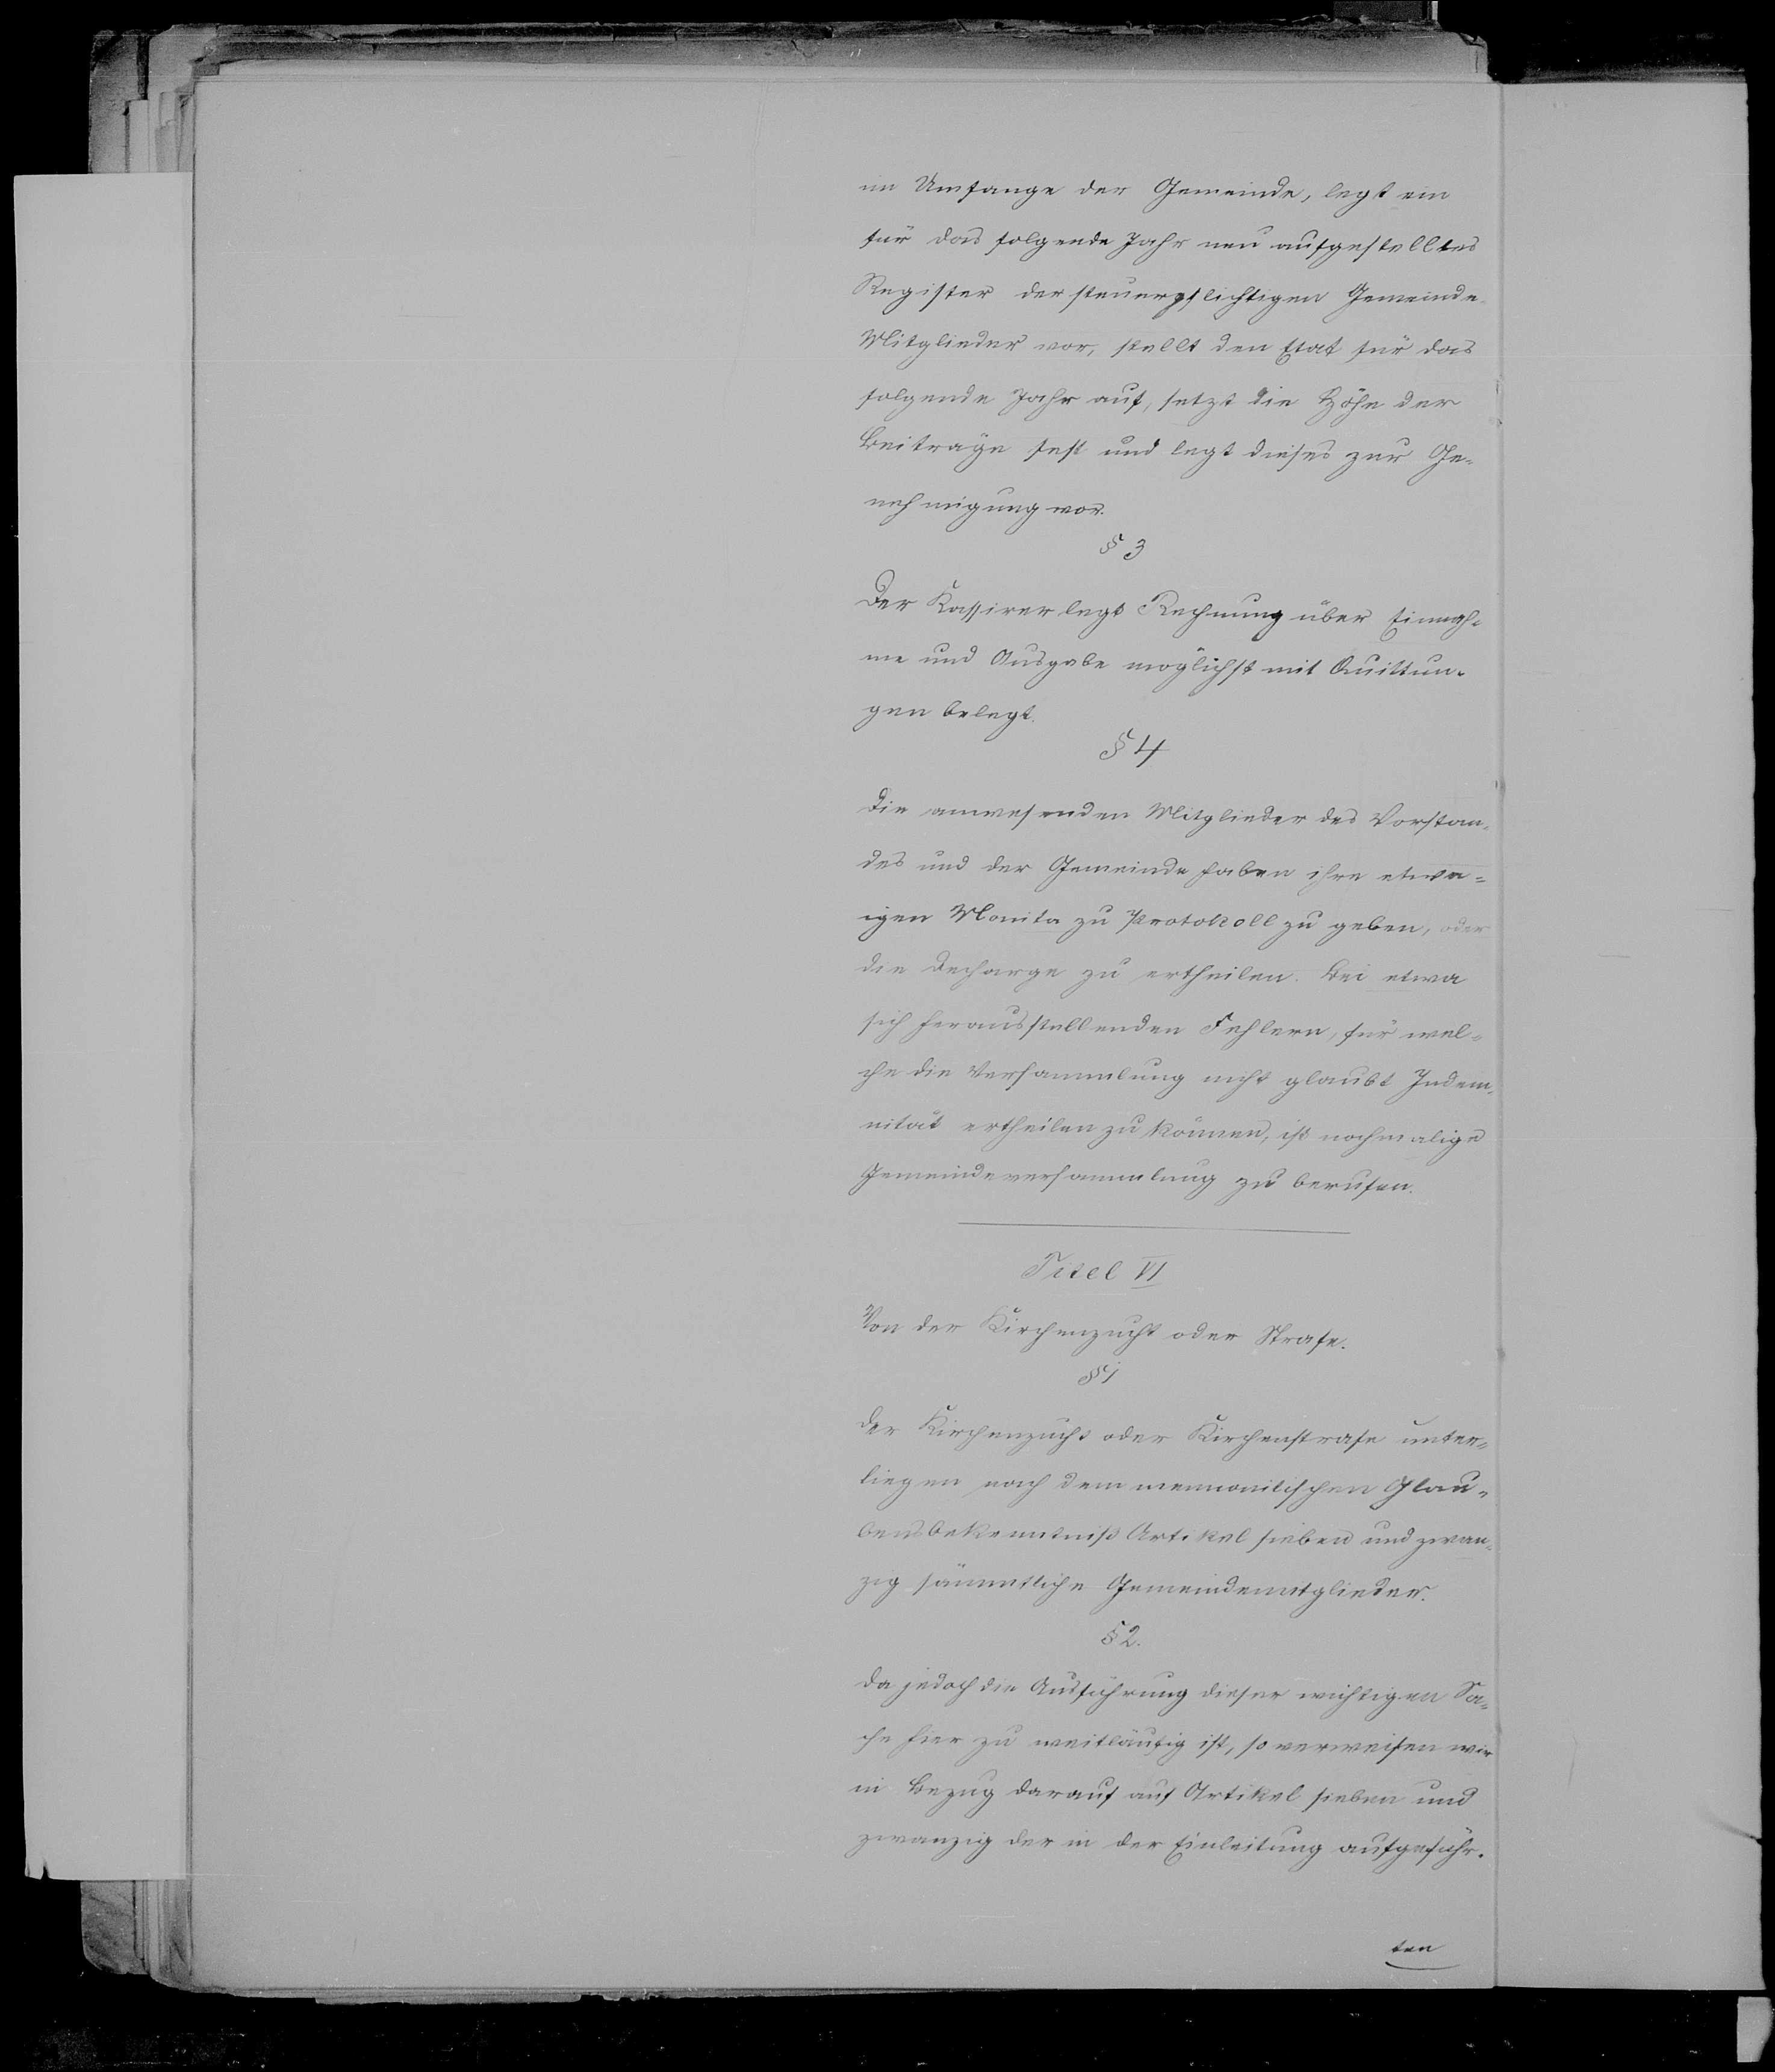 im Umfange der Gemeinde, legt ein
für das folgende Jahr neu aufgestelltes
Register der steuerpflichtigen Gemeinde-
Mitglieder vor, stellt den Etat für das
folgende Jahr auf, setzt die Höhe der
Beiträge fest und legt dieses zur Ge-
nehmigung vor.
§ 3
Der Kassirer legt Rechnung über Einnah-
me und Ausgabe möglichst mit Quittun-
gen belegt.
§ 4
Die anwesenden Mitglieder des Vorstan-
des und der Gemeinde haben ihre etwa-
igen Monita zu Protokoll zu geben, oder
die Decharge zu ertheilen. Bei etwa
sich herausstellenden Fehlern, für wel-
che die Versammlung nicht glaubt Indem-
nität ertheilen zu können, ist nochmalige
Gemeindeversammlung zu berufen.
Titel VI
Von der Kirchenzucht oder Strafe.
§ 1
Der Kirchenzucht oder Kirchenstrafe unter-
liegen nach dem mennonitischen Glau-
bensbekenntniß Artikel sieben und zwan-
zig sämmtliche Gemeindemitglieder.
§ 2.
Da jedoch die Ausführung dieser wichtigen Sa-
che hier zu weitläufig ist, so verweisen wir
in Bezug darauf auf Artikel sieben und
zwanzig der in der Einleitung aufgeführ-
ten